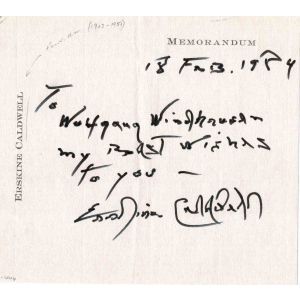 MEMORANDUM
18 FEB. 1984
ERSKINE CALDWELL
To
Wolfgang Windhausen
my Best Wishes
to you —
Erskine Caldwell